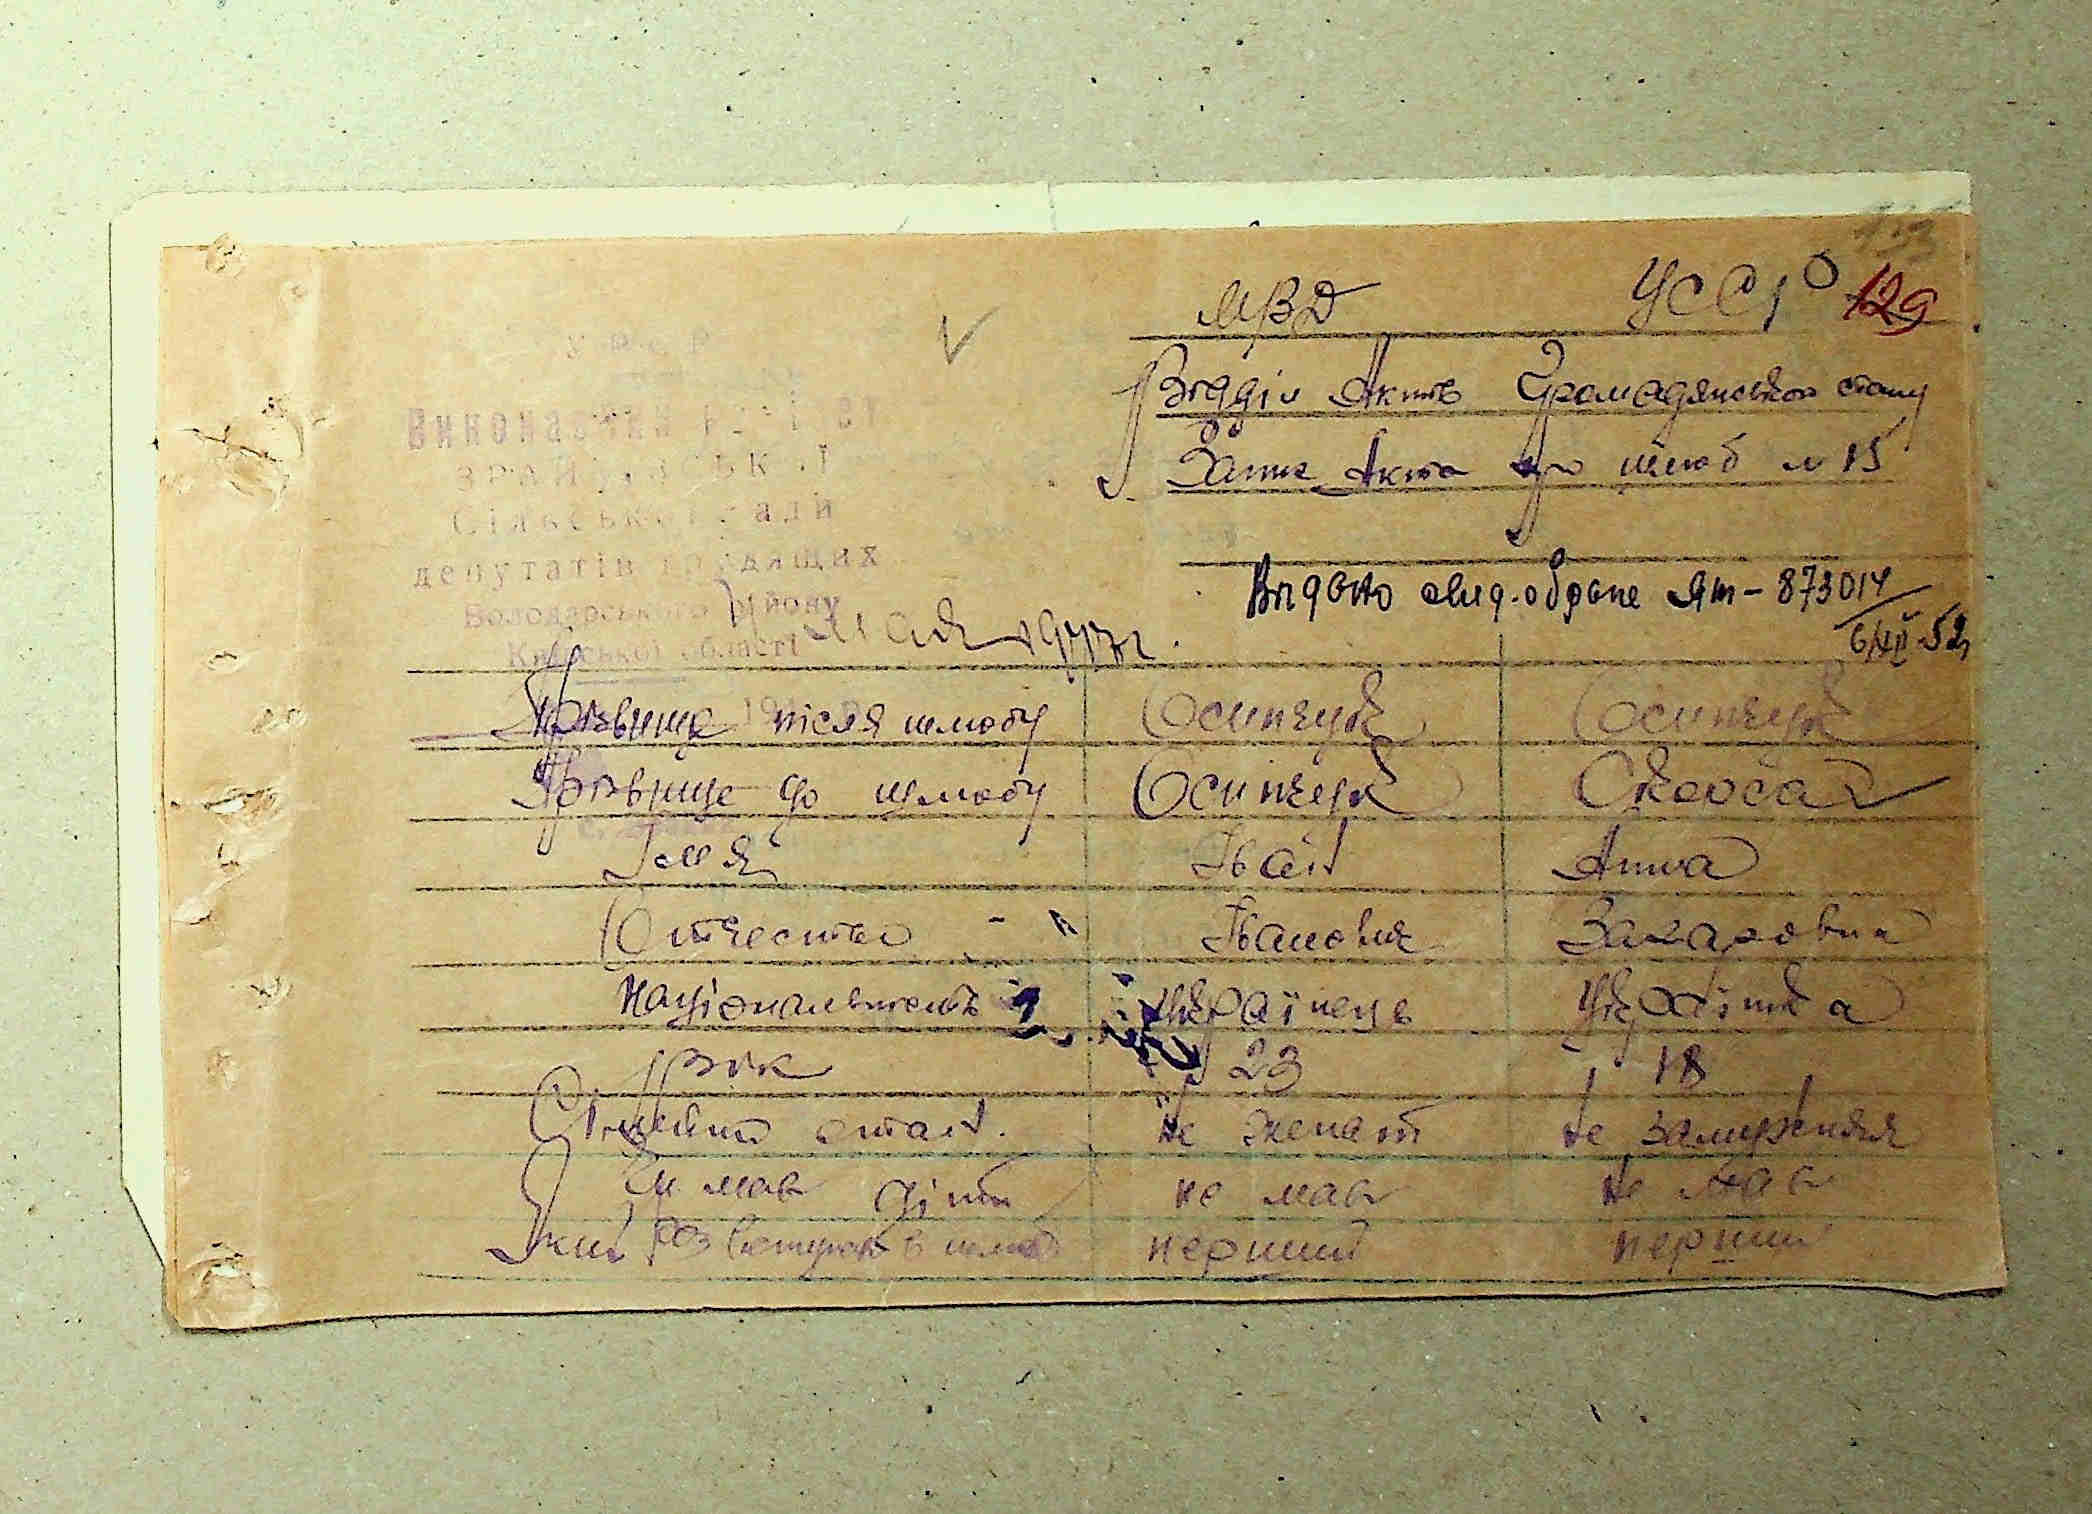 129
МВД УССР
Відділ Актів Громадянського стану
Запис Акта про шлюб № 15
УРСР
Виконавчий комітет
Сільської ради
депутатів трудящих
Володарського району
Київської області
Видано свид. о браке ЯТ-873014
6/XII-52
мая 1947 г.
Прізвище після шлюбу Осипчук Осипчук
Прізвище до шлюбу Осипчук
Імя Іван Анна
Отчество Іванович Захаровна
Національность Українець Українка
Вік 23 18
Сімейний стан. не женат не замужняя
Чи мав діти не мав не мав
Який раз вступає в шлюб перший перший